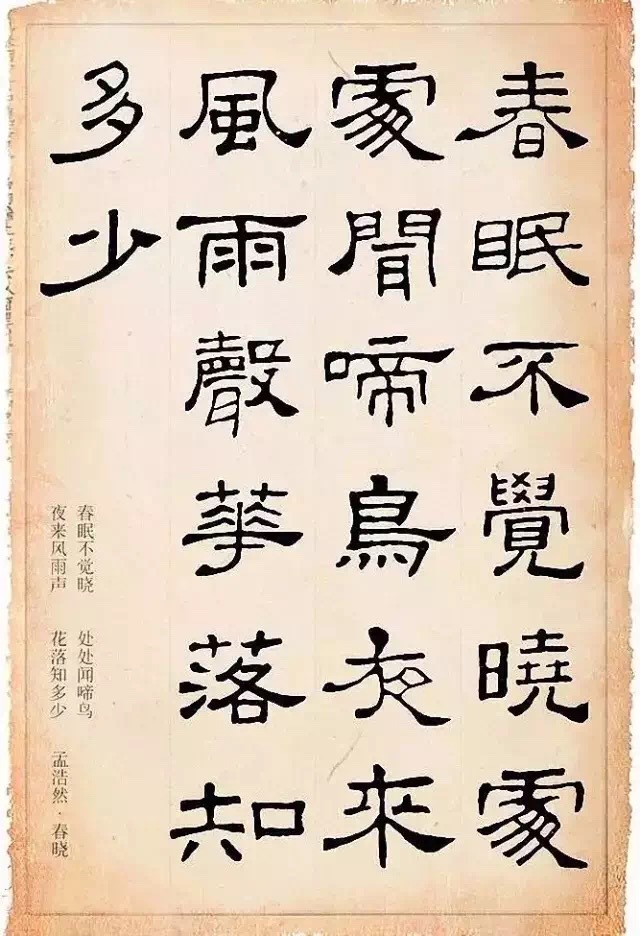 春眠不覺曉處
處聞啼鳥夜來
風雨聲華落知
多少
春眠不觉晓 处处闻啼鸟
夜来风雨声 花落知多少 孟浩然·春晓